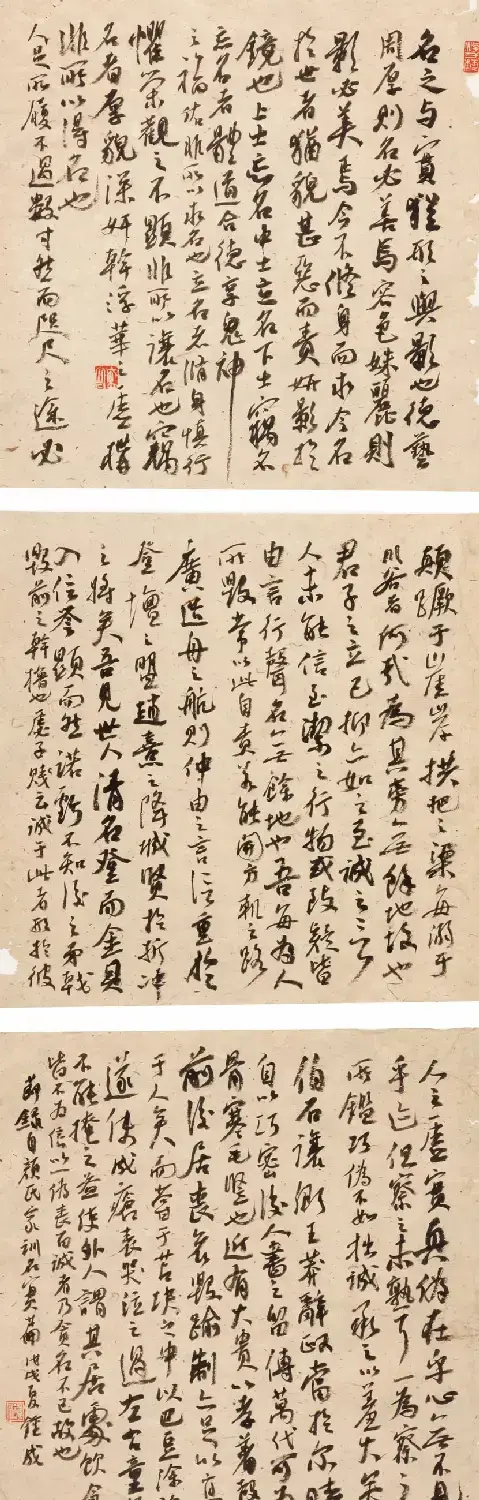 名之与實猶形之與影也德藝
周厚則名必善焉容色姝麗則
影必美焉今不脩身而求令名
於世者猶貌甚惡而責妍影於
鏡也上士忘名中士立名下士竊名
忘名者體道合德享鬼神
之福佑非所以求名也立名者脩身慎行
懼榮觀之不顯非所以讓名也竊
名者厚貌深奸幹浮華之虛構
非所以得名也
人足所履不過數寸然而咫尺之途必
顛蹶于崖岸拱把之梁每溺于
川谷者何哉為其旁無餘地故也
君子之立己抑亦如之至誠之言
人未能信至潔之行物或致疑皆
由言行聲名無餘地也吾每為人
所毀常以此自責若能開方軌之路
廣造舟之航則仲由之言信重於
登壇之盟趙熹之降城賢於折冲
之將矣吾見世人清名登而金貝
入信譽顯而然諾虧不知後之矛戟
毀前之幹櫓也虙子賤云誠于此者形於彼
人之虛實真偽在乎心無不見
乎迹但察之未熟耳一為察之
所鑑巧偽不如拙誠承之以羞大矣
伯石讓卿王莽辭政當於尔時
自以巧密後人書之留傳萬代可
骨寒毛竪也近有大貴以孝著聲
前後居喪哀毀踰制亦足以高
于人矣而嘗于苫塊之中以巴豆塗
遂使成瘡表哭泣之過左右童
不能掩之益使外人謂其居處飲食
皆不為信以一偽喪百誠者乃貪名不已故也
節錄自顏氏家訓名實篇戊戌夏